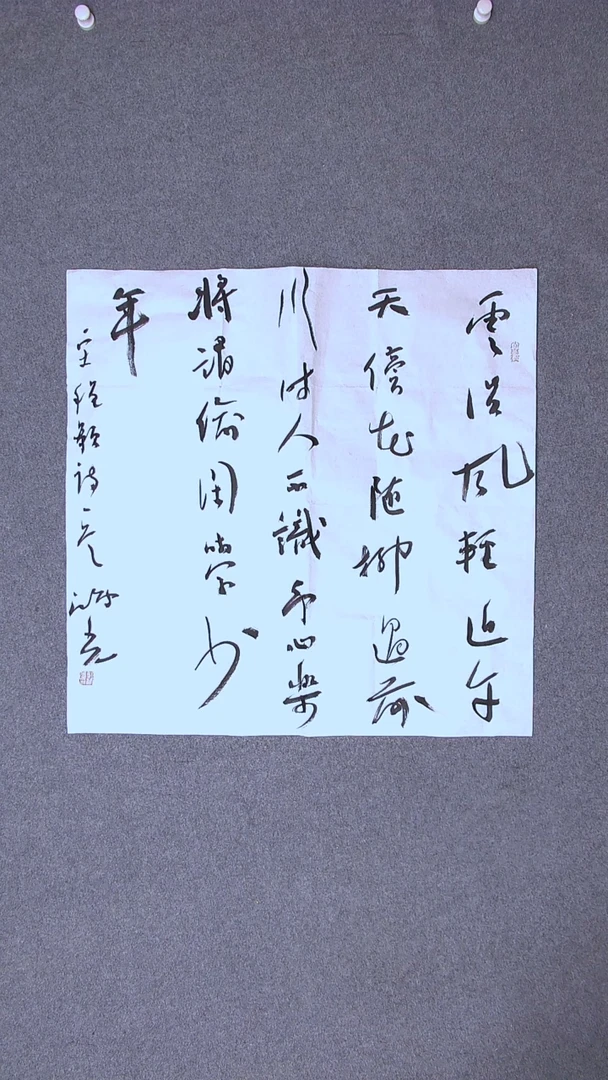 雲淡風輕近午
天傍花隨柳過前
川時人不識余心樂
將謂偷閑學少
年
宋程顥詩意